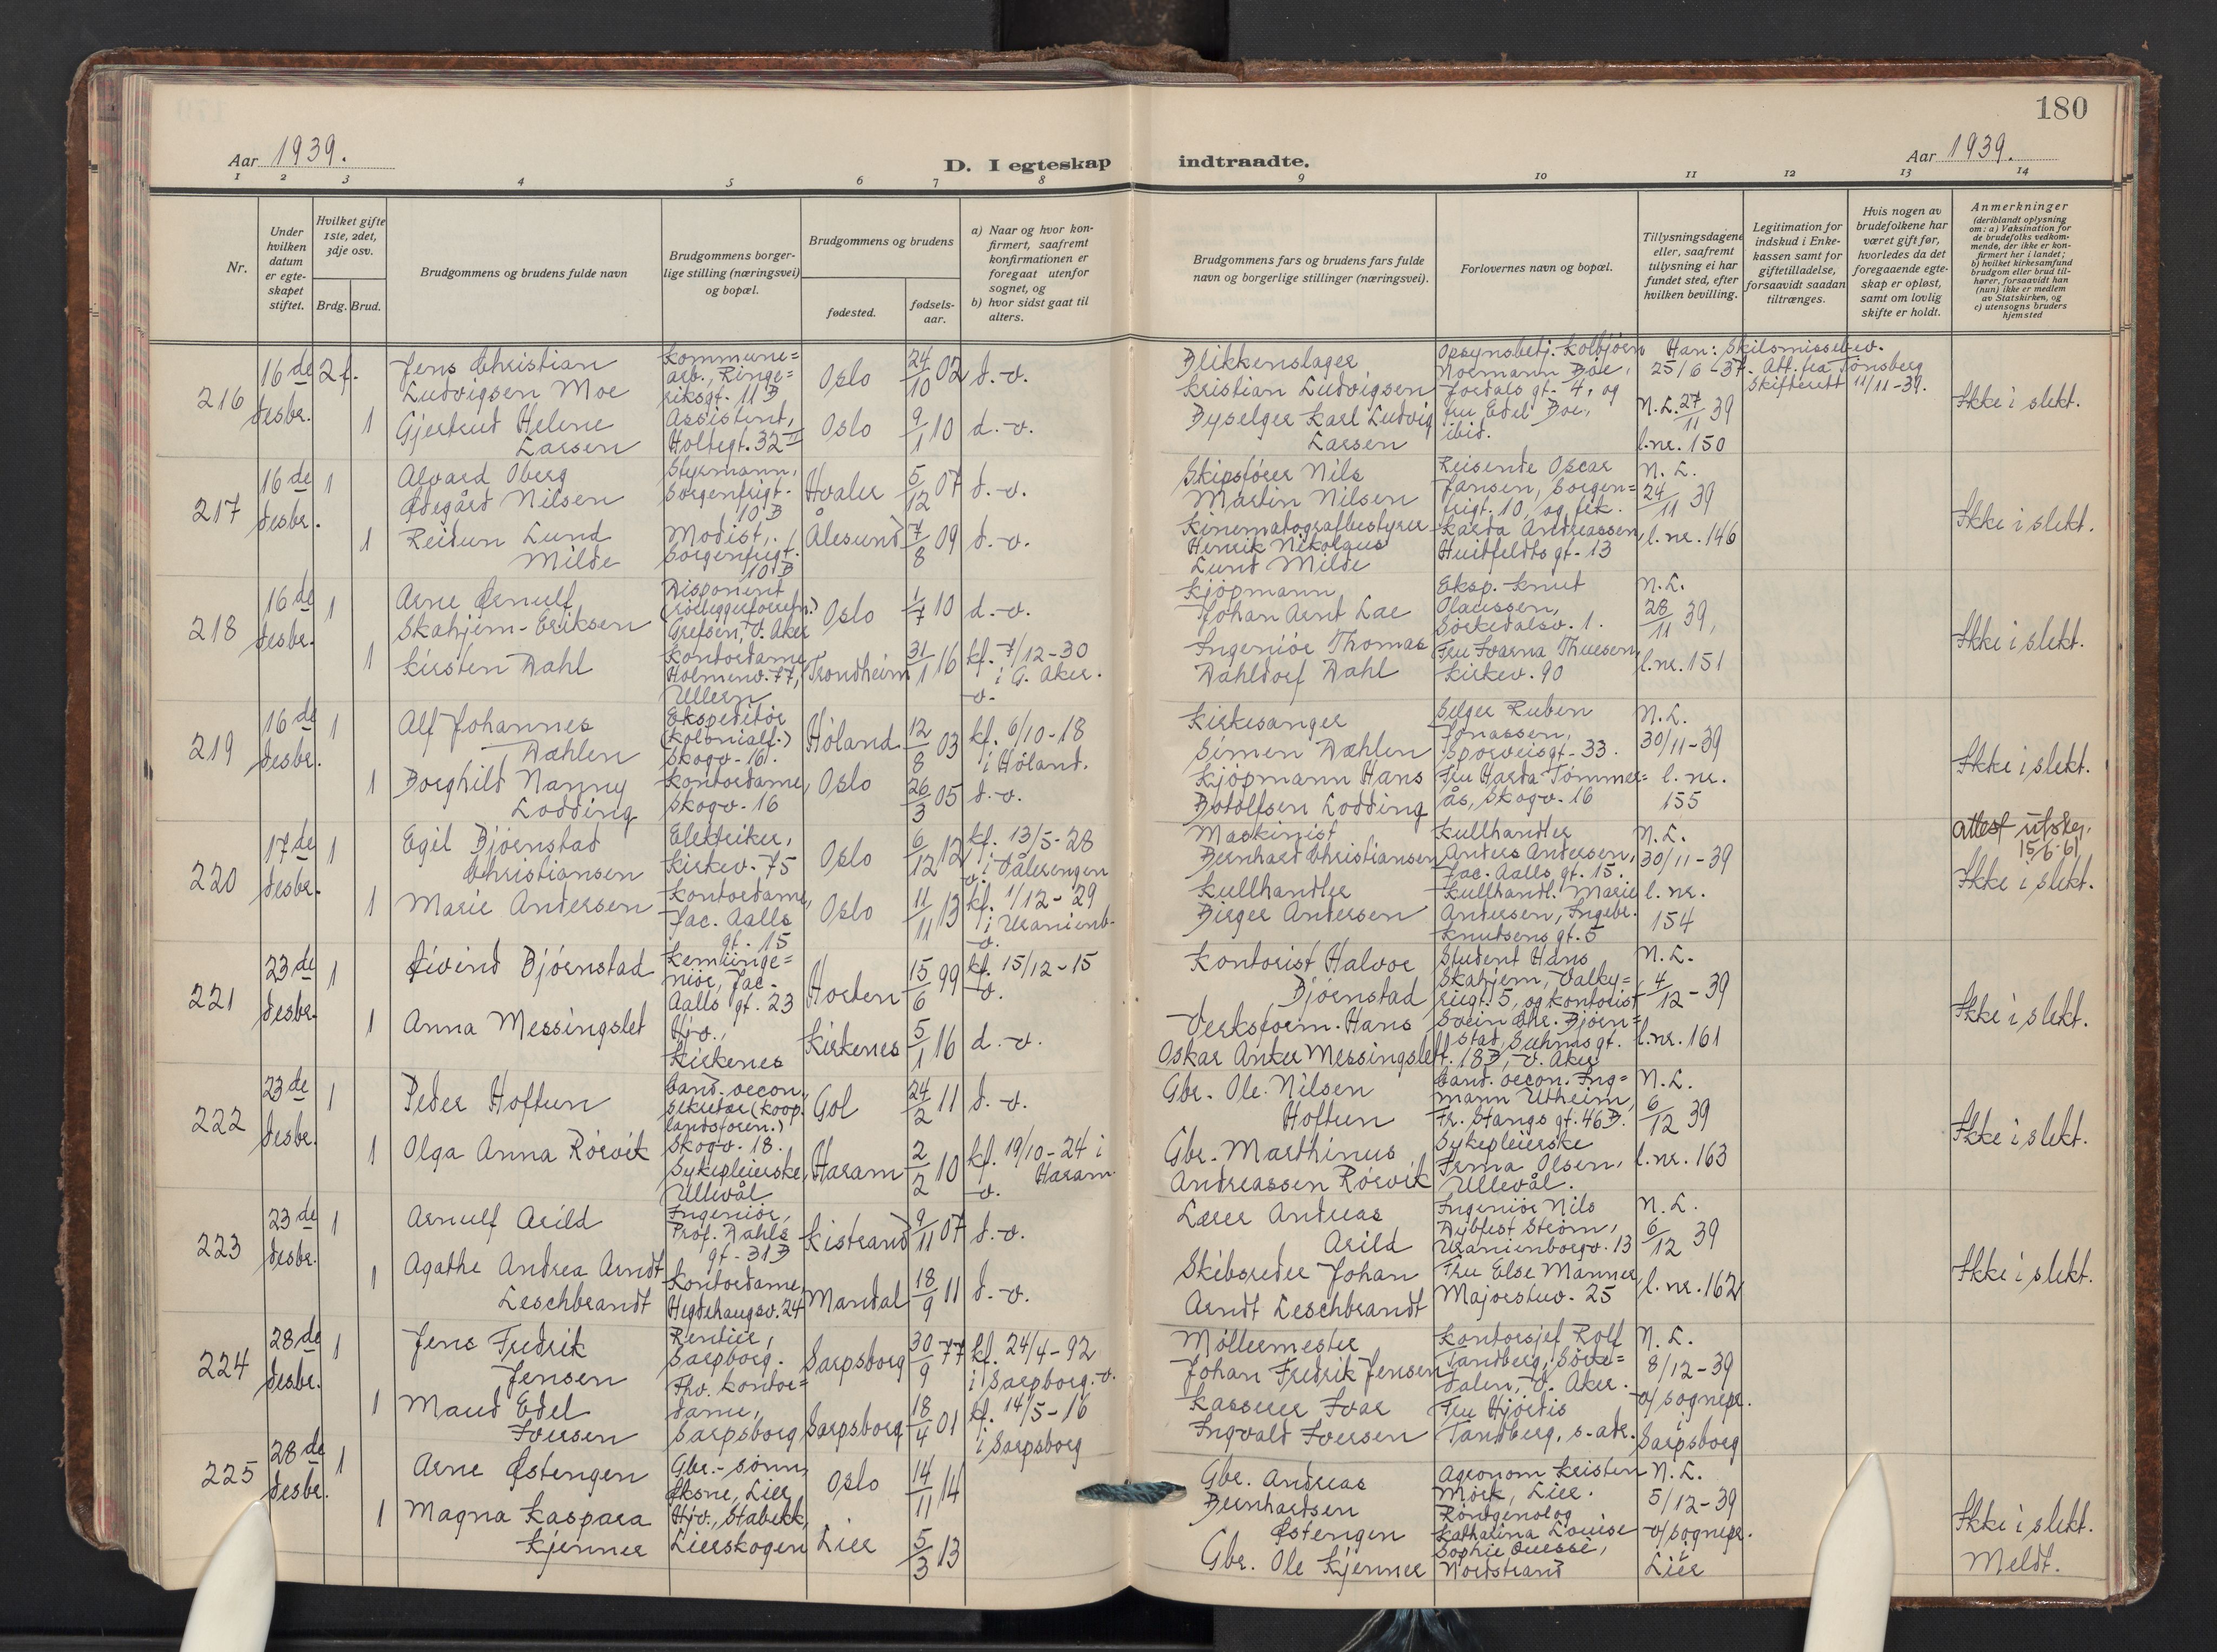 180
Aar 1939.
D. I egteskap indtraadte.
Aar 1939.
1 2 3 4 5 6 7 8 9 10 11 12 13 14
Nr.
Under hvilken datum er egteskapet stiftet.
Hvilket gifte 1ste, 2det, 3dje osv.
Brdg. Brud.
Brudgommens og brudens fulde navn
Brudgommens borgerlige stilling (næringsvei) og bopæl.
Brudgommens og brudens
fødested.
fødselsaar.
a) Naar og hvor konfirmert, saafremt konfirmationen er foregaat utenfor sognet, og
b) hvor sidst gaat til alters.
Brudgommens fars og brudens fars fulde navn og borgerlige stillinger (næringsvei).
Forlovernes navn og bopæl.
Tillysningsdagene eller, saafremt tillysning ei har fundet sted, efter hvilken bevilling.
Legitimation for indskud i Enkekassen samt for giftetilladelse, forsaavidt saadan tiltrænges.
Hvis nogen av brudefolkene har været gift før, hvorledes da det foregaaende egteskap er opløst, samt om lovlig skifte er holdt.
Anmerkninger
(deriblandt oplysning om: a) Vaksination for de brudefolks vedkommende, der ikke er konfirmert her i landet;
b) hvilket kirkesamfund brudgom eller brud tilhører, forsaavidt han (hun) ikke er medlem av Statskirken, og
c) utensogns bruders hjemsted
216
16de desbr.
2 f.
Jens Christian Ludvigsen Moe
Kommunearb., Ringeriksgt. 11 B
Oslo
24/10 02
d. v.
Blikkenslager Kristian Ludvigsen
Opsynsbetj. Kolbjørn Normann Bøe, Jordals gt. 4, og
Han: Skilsmissebev. 25/6-37. Att. fra Tønsberg Skifterett 11/11-39.
1
Gjertrud Helene Larsen
Assistent, Holtegt. 32 II
Oslo
9/1 10
d. v.
Byselger Karl Ludvig Larsen
fru Edel Bøe, ibid.
N. L. 27/11 39
l. nr. 150
Ikke i slekt.
217
16de desbr.
1
Alvard Oberg Ødegård Nilsen
Styrmann, Sorgenfrigt. 10 B
Hvaler
5/12 07
d. v.
Skipsfører Nils Martin Nilsen
Reisende Oscar Jansen, Sorgenfrigt. 10, og frk.
N. L. 24/11 39
1
Reidun Lund Milde
Modist, Sorgenfrigt. 10 B
Ålesund
7/8 09
d. v.
Kinematografbestyrer Henrik Nikolaus Lund Milde
Karda Andreassen, Huitfeldts gt. 13
l. nr. 146
Ikke i slekt.
218
16de desbr.
1
Arne Ørnulf Skahjem-Eriksen
Disponent (rørleggerforretn.) Grefsen, V. Aker
Oslo
1/7 10
d. v.
Kjøpmann Johan Arnt Lae
Eksp. Knut Olaussen, Sørkedalsv. 1.
N. L. 28/11 39,
1
Kirsten Dahl
Kontordame, Holmenv. 77, Ullern
Trondheim
31/1 16
kf. 7/12-30 i V. Aker. v.
Ingeniør Thomas Dahldorf Dahl
Fru Ivarna Thuesen, Kirkev. 90
l. nr. 151
Ikke i slekt.
219
16de desbr.
1
Alf Johannes Dæhlen
Ekspeditør (kolonialf.) Skogv. 16.
Høland
12/8 03
kf. 6/10-18 i Høland.
Kirkesanger Simen Dæhlen
Selger Ruben Jonassen, Sporveisgt. 33.
N. L. 30/11-39
1
Borghild Nanny Lodding
Kontordame, Skogv. 16
Oslo
26/3 05
d. v.
Kjøpmann Hans Botolfsen Lodding
Fru Harda Tømmerås, Skogv. 16
l. nr. 155
Ikke i slekt.
220
17de desbr.
1
Egil Bjørnstad Christiansen
Elektriker, Kirkev. 75
Oslo
6/12 12
kf. 13/5-28 i Vålerengen v.
Maskinist Bernhard Christiansen
Kullhandler Anders Andersen, Jac. Aalls gt. 15.
N. L. 30/11-39
attest utskr. 15/6-61
1
Marie Andersen
Kontordame, Jac. Aalls gt. 15
Oslo
11/11 13
kf. 1/12-29 i Uranienb. v.
Kullhandler Birger Andersen
Kullhandl. Marie Andersen, Ingebr. Knudsens gt. 5
l. nr. 154
Ikke i slekt.
221
23de desbr.
1
Øivind Bjørnstad
Kemiingeniør, Jac. Aalls gt. 23
Horten
15/6 99
kf. 15/12-15 v.
Kontorist Halvor Bjørnstad
Student Hans Skahjem, Valkyriegt. 5, og kontorist
N. L. 4/12-39
1
Anna Messingslet
Hjv., Kirkenes
Kirkenes
5/1 16
d. v.
Verksform. Hans Oskar Anker Messingslett.
Svein Chr. Bjørnstad, Suhms gt. 18 B, V. Aker
l. nr. 161
Ikke i slekt.
222
23de desbr.
1
Peder Hoftun
Cand. oecon., sekretær (koop. landsforen.) Skogv. 18.
Gol
24/2 11
d. v.
Gbr. Ole Nilsen Hoftun
Cand. oecon. Ingmann Utheim, Fr. Stangs gt. 46 B.
N. L. 6/12 39
1
Olga Anna Rørvik
Sykepleierske, Ullevål
Haram
2/2 10
kf. 19/10-24 i Haram v.
Gbr. Marthinus Andreassen Rørvik
Sykepleierske Irma Olsen, Ullevål.
l. nr. 163
Ikke i slekt.
223
23de desbr.
1
Arnulf Arild
Ingeniør, Prof. Dahls gt. 31 B
Kistrand
9/11 07
d. v.
Lærer Andreas Arild
Ingeniør Nils Dybfest Strøm, Uranienborgv. 13
N. L. 6/12 39
1
Agathe Andrea Arndt Leschbrandt
Kontordame, Hegdehaugsv. 24
Mandal
18/9 11
d. v.
Skibsreder Johan Arndt Leschbrandt
Fru Else Manner, Majorstuv. 25
l. nr. 162
Ikke i slekt.
224
28de desbr.
1
Jens Fredrik Jensen
Rentier, Sarpborg.
Sarpsborg
30/9 77
kf. 24/4-92 i Sarpborg. v.
Møllermester Johan Fredrik Jensen
Kontorsjef Rolf Tandberg, Sørkedalen, V. Aker.
N. L. 8/12-39
1
Maud Edel Iversen
Fhv. kontordame, Sarpsborg
Sarpsborg
18/4 01
kf. 14/5-16 i Sarpsborg
Kasserer Ivar Ingvald Iversen
Fru Hjørdis Tandberg, s. adr.
v/ sognepr. i Sarpsborg
225
28de desbr.
1
Arne Østengen
Gbr.-sønn, Øksne, Lier
Oslo
14/11 14
Gbr. Andreas Bernhardsen Østengen
Agronom Kristen Mørk, Lier.
N. L. 5/12-39
1
Magna Kaspara Kjenner
Hjv., Stabekk, Lierskogen
Lier
5/3 13
Gbr. Ole Kjenner
Røntgenolog Katharina Louise Sophie Nordstrand
v/ sognepr. i Lier
Ikke i slekt.
Meldt.